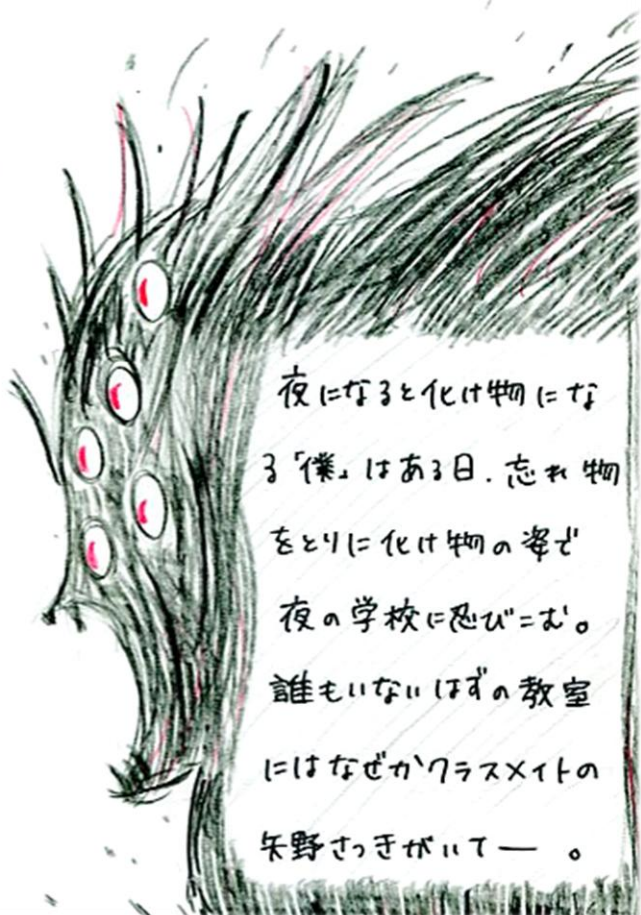 夜になると化け物にな
る「僕」はある日、忘れ物
をとりに化け物の姿で
夜の学校に忍びこむ。
誰もいないはずの教室
にはなぜかクラスメイトの
矢野さつきがいて―。